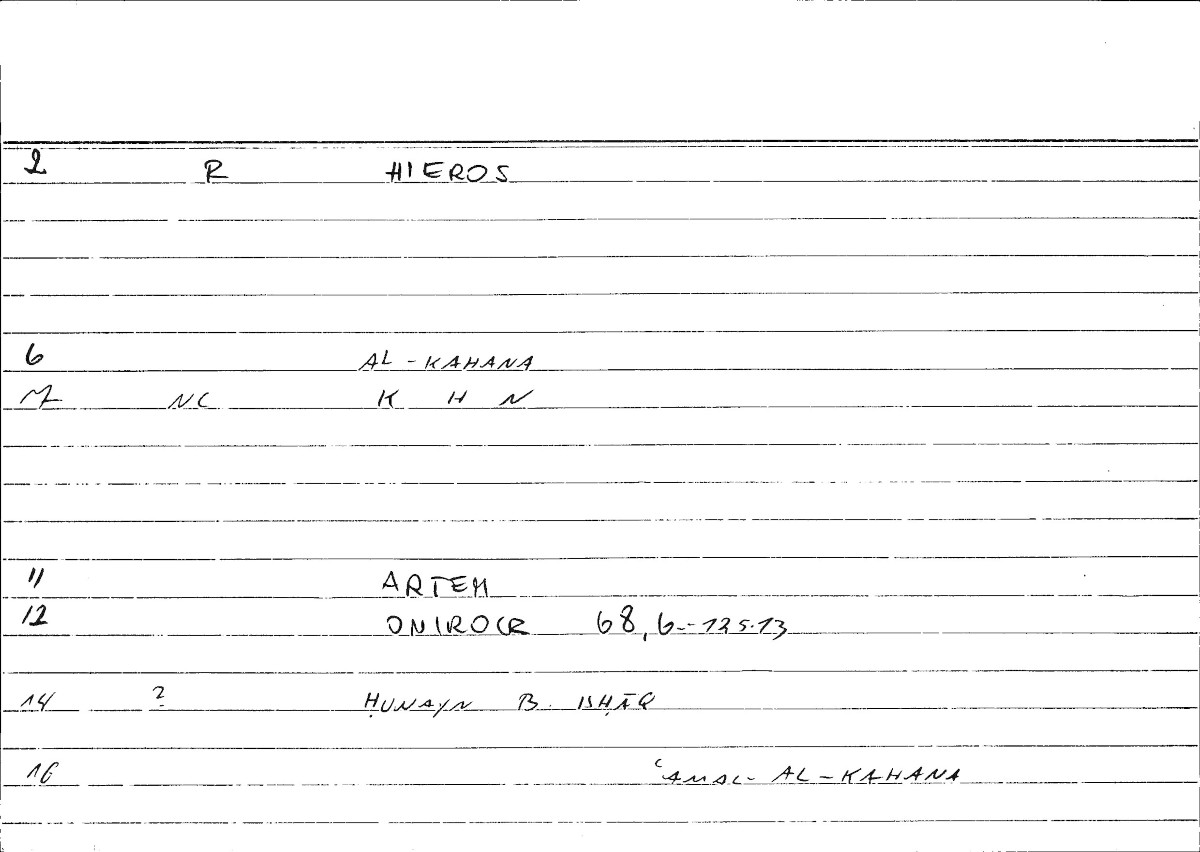 2 R HIEROS
6 AL-KAHANA
NC K H N
11 ARTEM
12 ONIROCR 68,6--125.13
14 ? ḤUNAYN B. ISḤĀQ
16 ʿAMAL AL-KAHANA